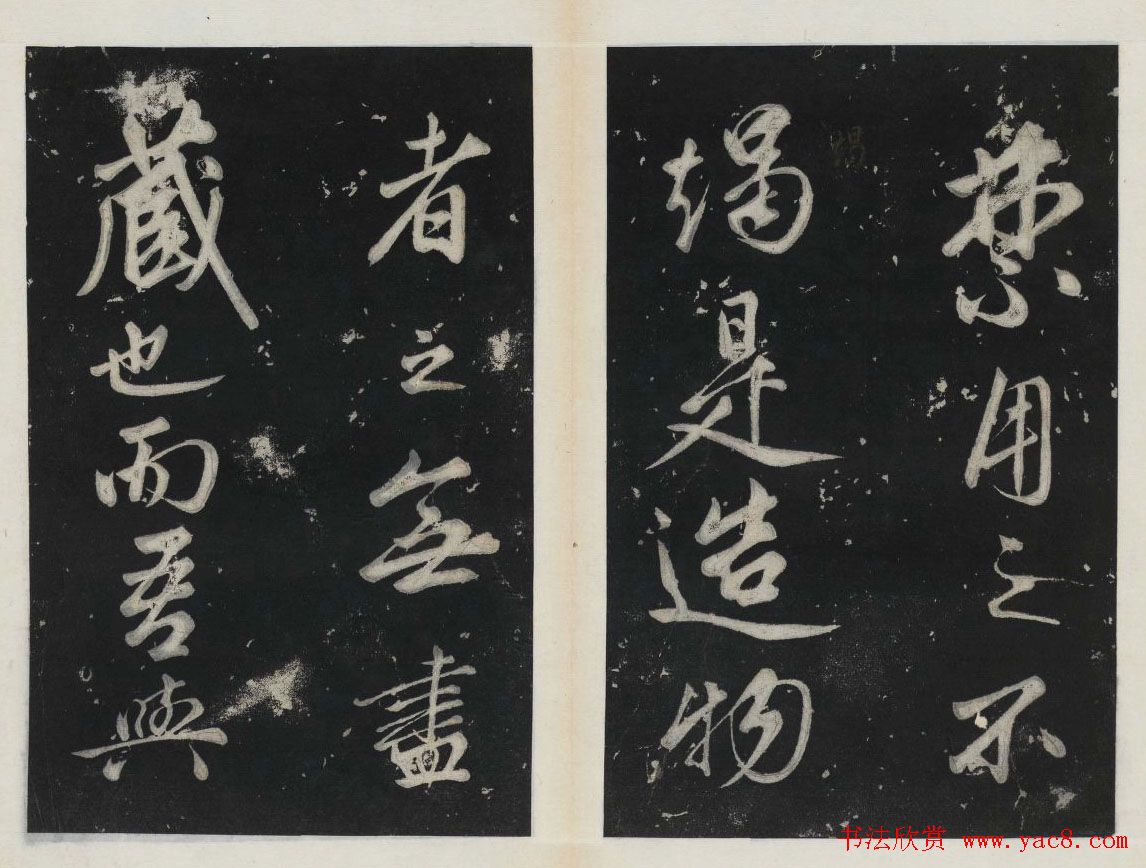 禁用之不
竭是造物
者之無盡
藏也而吾與
書法欣赏 www.yac8.com